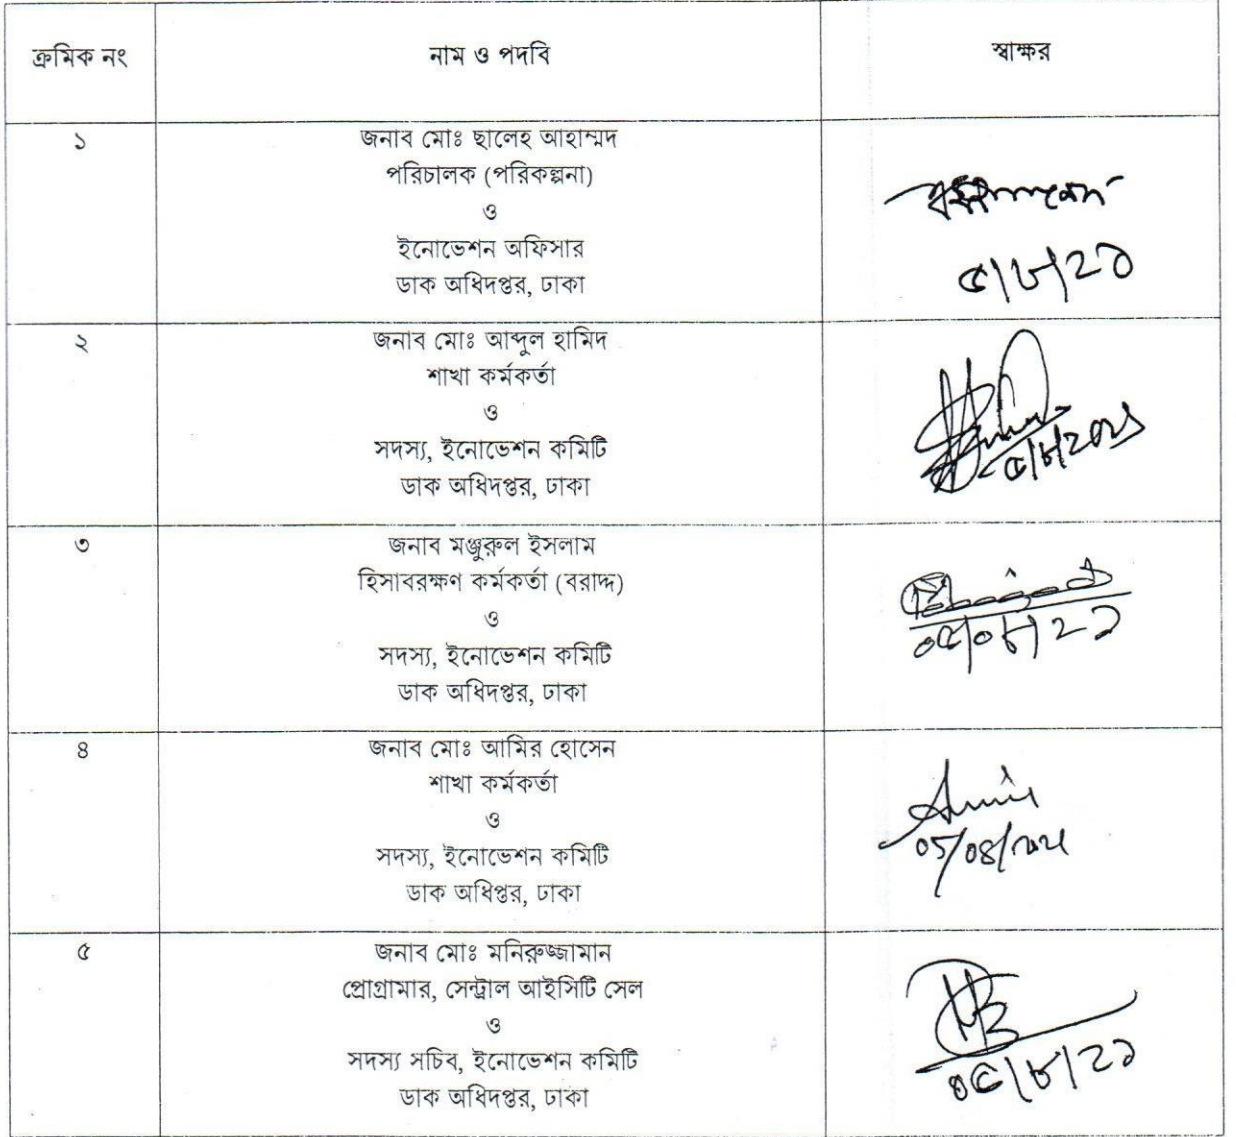 ক্রমিক নং নাম ও পদবি স্বাক্ষর
১ জনাব মোঃ ছালেহ আহাম্মদ
পরিচালক (পরিকল্পনা)
ও
ইনোভেশন অফিসার
ডাক অধিদপ্তর, ঢাকা
৫/৮/২১
২ জনাব মোঃ আব্দুল হামিদ
শাখা কর্মকর্তা
ও
সদস্য, ইনোভেশন কমিটি
ডাক অধিদপ্তর, ঢাকা
৫/৮/২০২১
৩ জনাব মঞ্জুরুল ইসলাম
হিসাবরক্ষণ কর্মকর্তা (বরাদ্দ)
ও
সদস্য, ইনোভেশন কমিটি
ডাক অধিদপ্তর, ঢাকা
০৫/০৮/২১
৪ জনাব মোঃ আমির হোসেন
শাখা কর্মকর্তা
ও
সদস্য, ইনোভেশন কমিটি
ডাক অধিপ্তর, ঢাকা
Amir
05/08/2021
৫ জনাব মোঃ মনিরুজ্জামান
প্রোগ্রামার, সেন্ট্রাল আইসিটি সেল
ও
সদস্য সচিব, ইনোভেশন কমিটি
ডাক অধিদপ্তর, ঢাকা
০৫/৮/২১